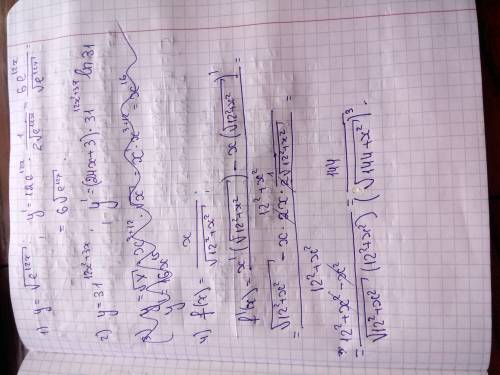 1) y = √(e^(12x)) ; y' = 12e^(12x) · 1/(2√(e^(12x))) = 6e^(12x)/√(e^(12x)) =
= 6√(e^(12x)) .
2) y = 31^(12x²+3x) ; y' = (24x+3) · 31^(12x²+3x) ln 31
4) f(x) = x/√(12²+x²) ;
f'(x) = (x'(√(12²+x²)) − x(√(12²+x²))')/(12²+x²) =
= (√(12²+x²) − x · 2x · 1/(2√(12²+x²)))/(12²+x²) =
= (12²+x²−x²)/(√(12²+x²) (12²+x²)) = 144/(√(144+x²))³ .